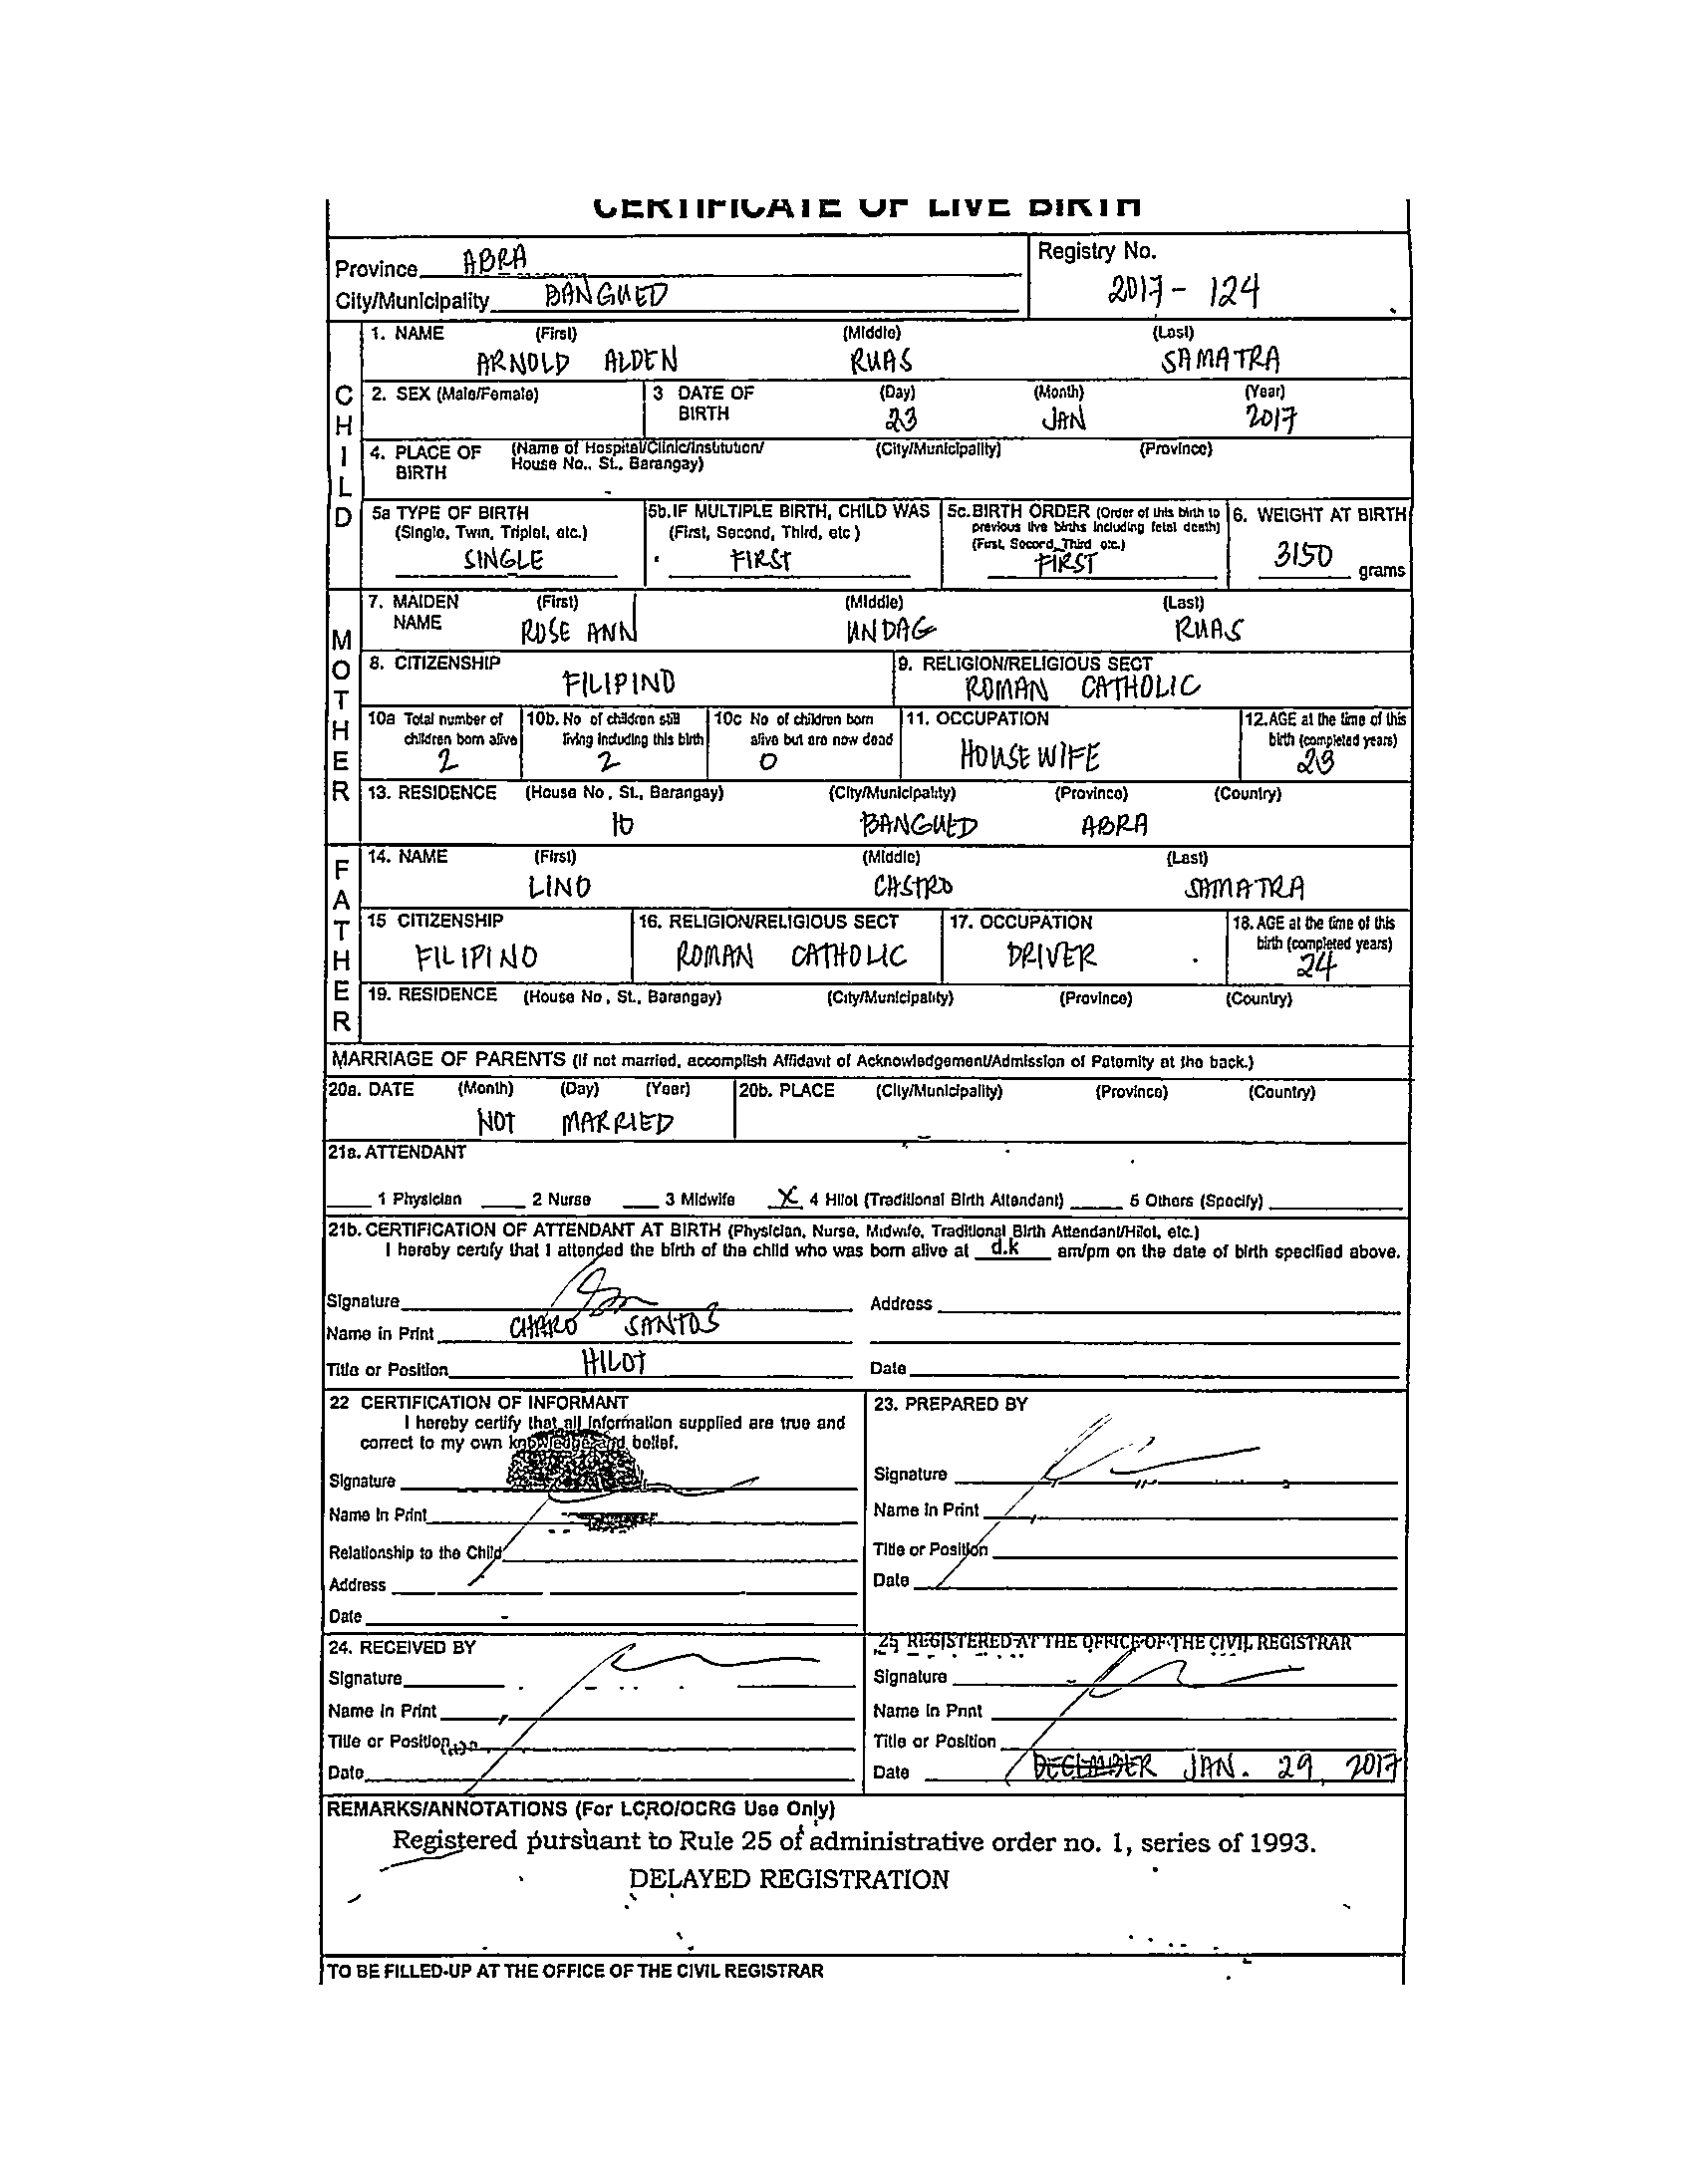 CERTIFICATE OF LIVE BIRTH
Province ABRA
Registry No.
City/Municipality BANGUED
2017- 124
1. NAME (First) (Middle) (Last)
ARNOLD ALDEN RUAS SAMATRA
CHILD
2. SEX (Male/Female) 3 DATE OF BIRTH (Day) (Month) (Year)
23 JAN 2017
4. PLACE OF BIRTH (Name of Hospital/Clinic/Institution/ House No., St., Barangay) (City/Municipality) (Province)
5a TYPE OF BIRTH (Single, Twin, Triplet, etc.) 5b. IF MULTIPLE BIRTH, CHILD WAS (First, Second, Third, etc) 5c. BIRTH ORDER (Order of this birth to previous live births including fetal death) (First, Second, Third etc.) 6. WEIGHT AT BIRTH
SINGLE FIRST FIRST 3150 grams
MOTHER
7. MAIDEN NAME (First) (Middle) (Last)
ROSE ANN UNDAG RUAS
8. CITIZENSHIP 9. RELIGION/RELIGIOUS SECT
FILIPINO ROMAN CATHOLIC
10a Total number of children born alive 10b. No of children still living including this birth 10c No of children born alive but are now dead 11. OCCUPATION 12. AGE at the time of this birth (completed years)
2 2 0 HOUSEWIFE 23
13. RESIDENCE (House No, St., Barangay) (City/Municipality) (Province) (Country)
10 BANGUED ABRA
FATHER
14. NAME (First) (Middle) (Last)
LINO CASTRO SAMATRA
15 CITIZENSHIP 16. RELIGION/RELIGIOUS SECT 17. OCCUPATION 18. AGE at the time of this birth (completed years)
FILIPINO ROMAN CATHOLIC DRIVER 24
19. RESIDENCE (House No, St., Barangay) (City/Municipality) (Province) (Country)
MARRIAGE OF PARENTS (If not married, accomplish Affidavit of Acknowledgement/Admission of Paternity at the back.)
20a. DATE (Month) (Day) (Year) 20b. PLACE (City/Municipality) (Province) (Country)
NOT MARRIED
21a. ATTENDANT
1 Physician 2 Nurse 3 Midwife X 4 Hilot (Traditional Birth Attendant) 5 Others (Specify)
21b. CERTIFICATION OF ATTENDANT AT BIRTH (Physician, Nurse, Midwife, Traditional Birth Attendant/Hilot, etc.)
I hereby certify that I attended the birth of the child who was born alive at d.k am/pm on the date of birth specified above.
Signature Address
Name in Print CHARO SANTOS
Title or Position HILOT Date
22 CERTIFICATION OF INFORMANT 23. PREPARED BY
I hereby certify that all information supplied are true and
correct to my own knowledge and belief.
Signature Signature
Name in Print Name in Print
Relationship to the Child Title or Position
Address Date
Date
24. RECEIVED BY 25 REGISTERED AT THE OFFICE OF THE CIVIL REGISTRAR
Signature Signature
Name in Print Name in Print
Title or Position Title or Position
Date Date DECEMBER JAN. 29, 2017
REMARKS/ANNOTATIONS (For LCRO/OCRG Use Only)
Registered pursuant to Rule 25 of administrative order no. 1, series of 1993.
DELAYED REGISTRATION
TO BE FILLED-UP AT THE OFFICE OF THE CIVIL REGISTRAR